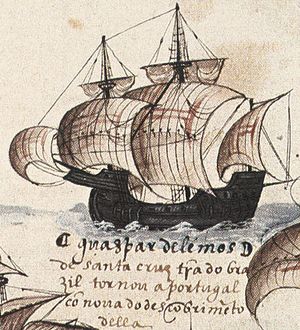 ¶ guaspar de lemos D
de santa cruz tr̃a do bra
zil tornou a portugal
cõ nova do descobrimẽto
della